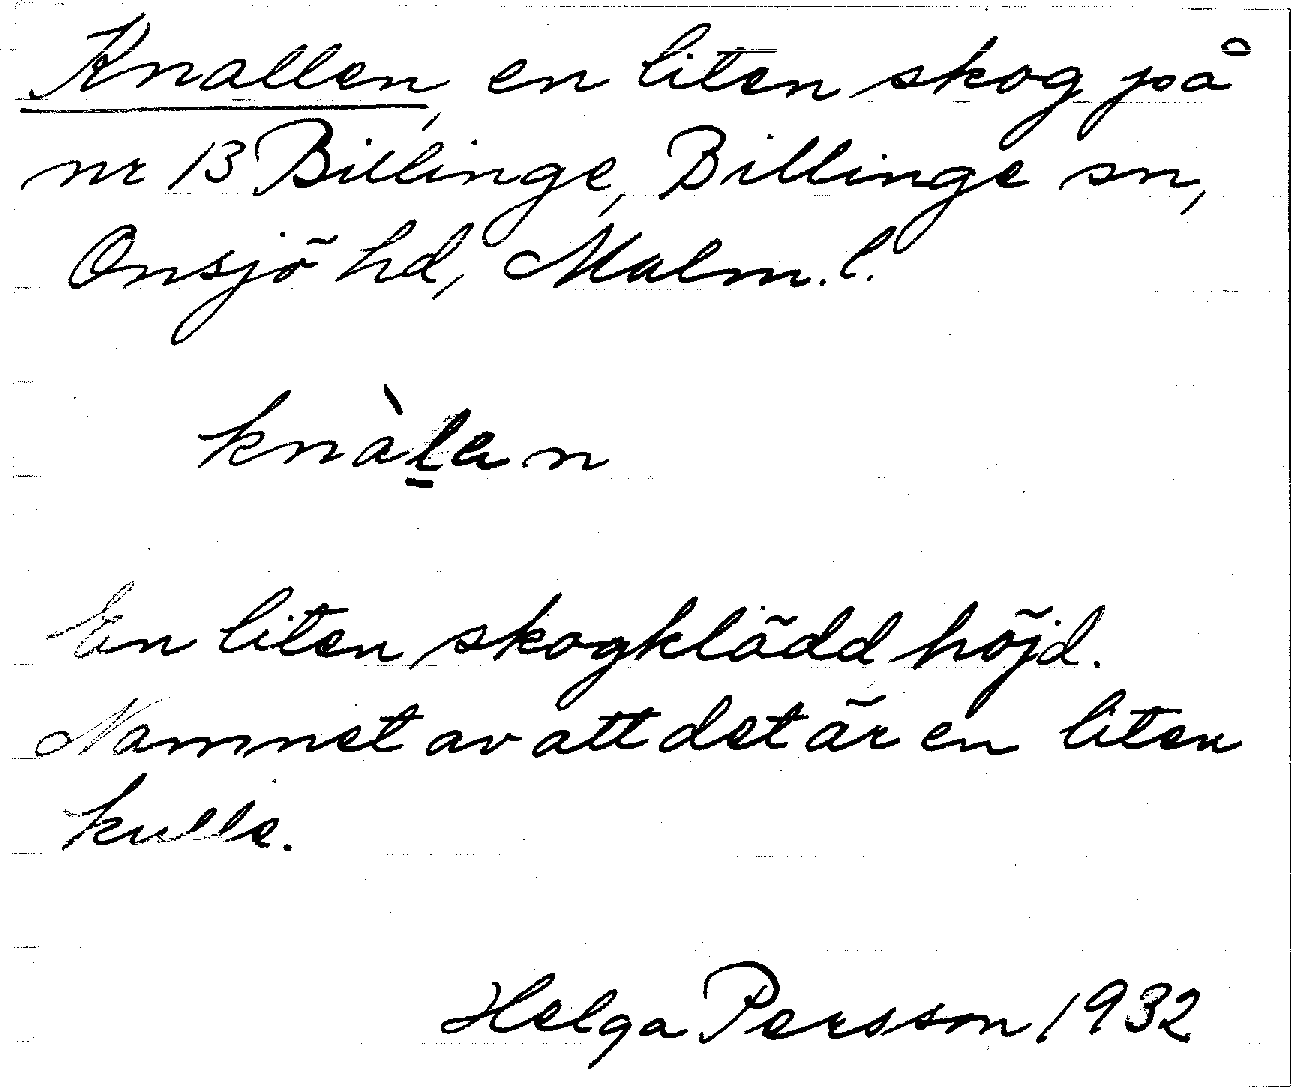 Knallen, en liten skog på
nr 13 Billinge, Billinge sn,
Onsjö hd, Malm. l.
knàlan
En liten skogklädd höjd.
Namnet av att det är en liten
kulle.
Helga Persson 1932